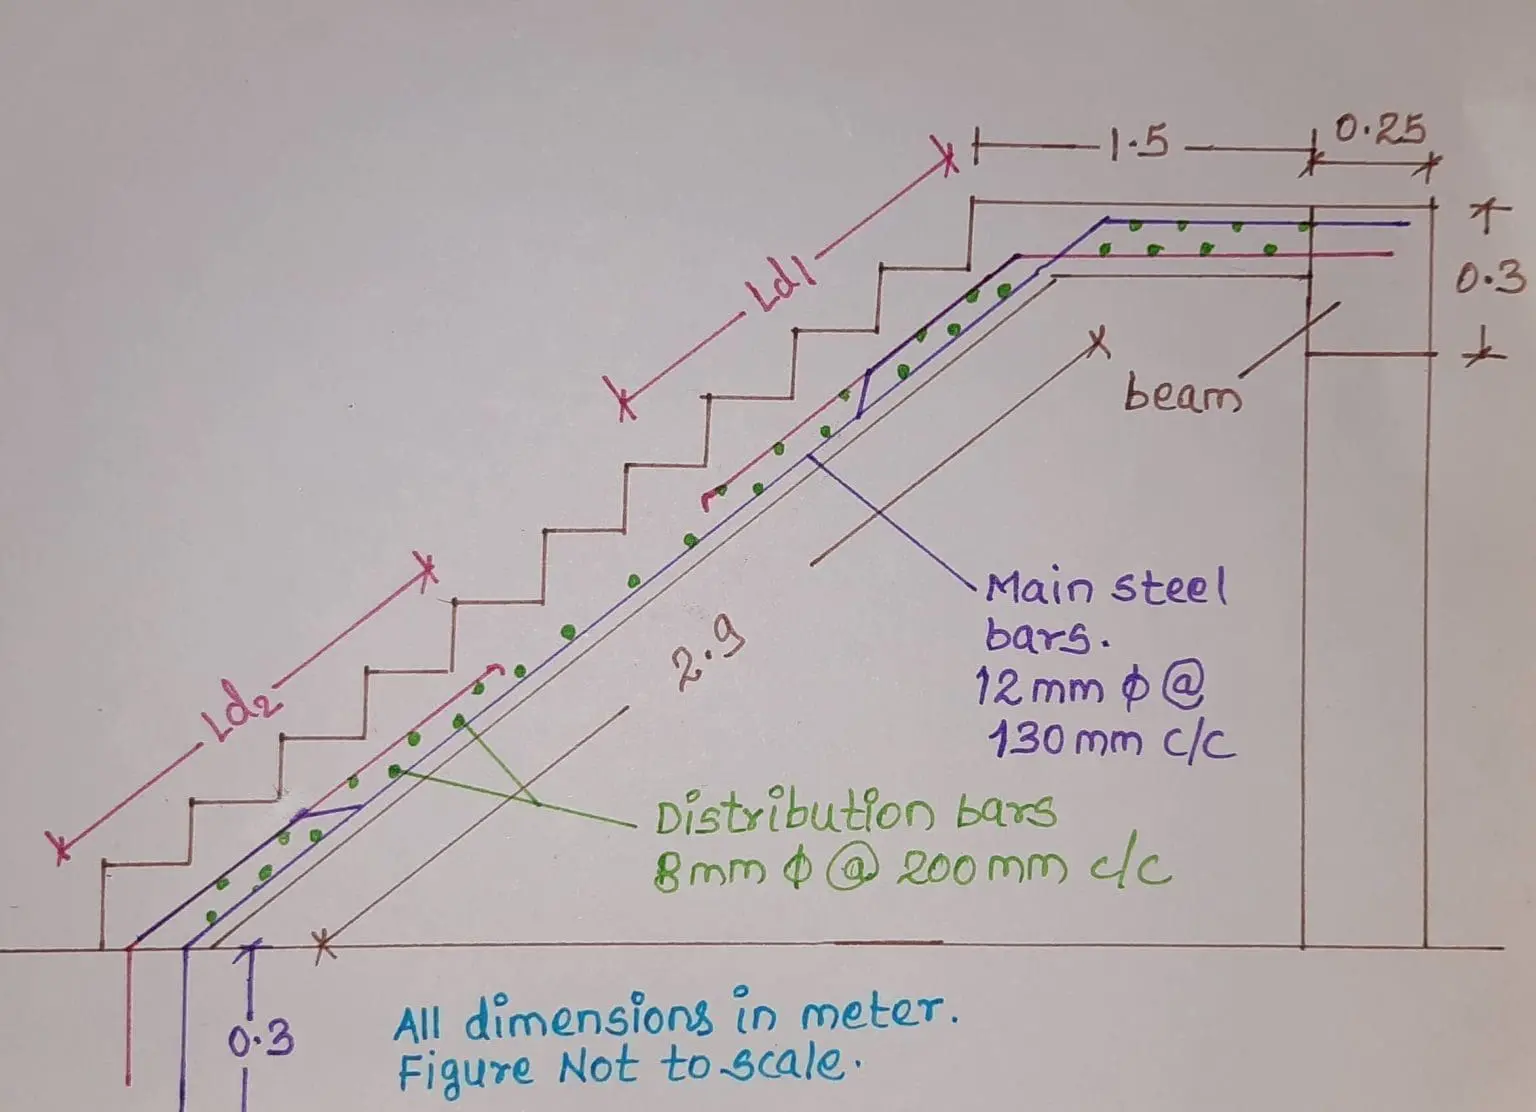 1.5
0.25
Ld1
0.3
beam
Main steel
bars.
12mm ϕ @
130mm c/c
2.9
Ld2
Distribution bars
8mm ϕ @ 200mm c/c
0.3
All dimensions in meter.
Figure Not to scale.